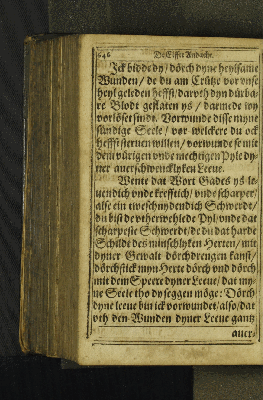 646 De Elffte Andacht.
Ick bidde dy / dörch dyne heylsame
Wunden / de du am Crütze vor vnse
heyl geleden heffst / daruth dyn dürba-
re Blodt geflaten ys / darmede wy
vorlöset sinde. Vorwunde disse myne
sündige Seele / vor welckere du ock
heffst steruen willen / vorwunde se mit
dem vürigen vnde mechtigen Pyle dy-
ner auerschwencklyken Leeue.
Wente dat Wort Gades ys le-
uendich vnde krefftich / vnde scharper /
alse ein tweschnydendich Schwerdt /
du bist de vtherwehlede Pyl / vnde dat
scharpeste Schwerdt / de du dat harde
Schildt des minschlyken Herten / mit
dyner Gewalt dörchdrengen kanst /
dörchstick myn Herte dörch vnd dörch
mit dem Speere dyner Leeue / dat my-
ne Seele tho dy seggen möge: Dörch
dyne leeue bin ick vorwundet / also / dat
vth den Wunden dyner Leeue gantz
auer-